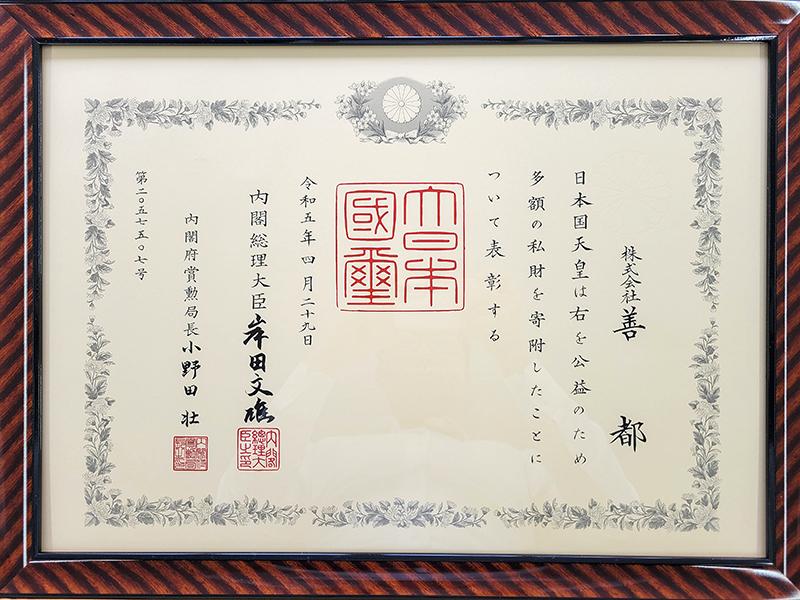 株式会社善都
日本国天皇は右を公益のため
多額の私財を寄附したことに
ついて表彰する
大日本
國璽
令和五年四月二十九日
内閣総理大臣岸田文雄
内閣総理大臣之印
内閣府賞勲局長小野田壮
第二〇五七五〇七号